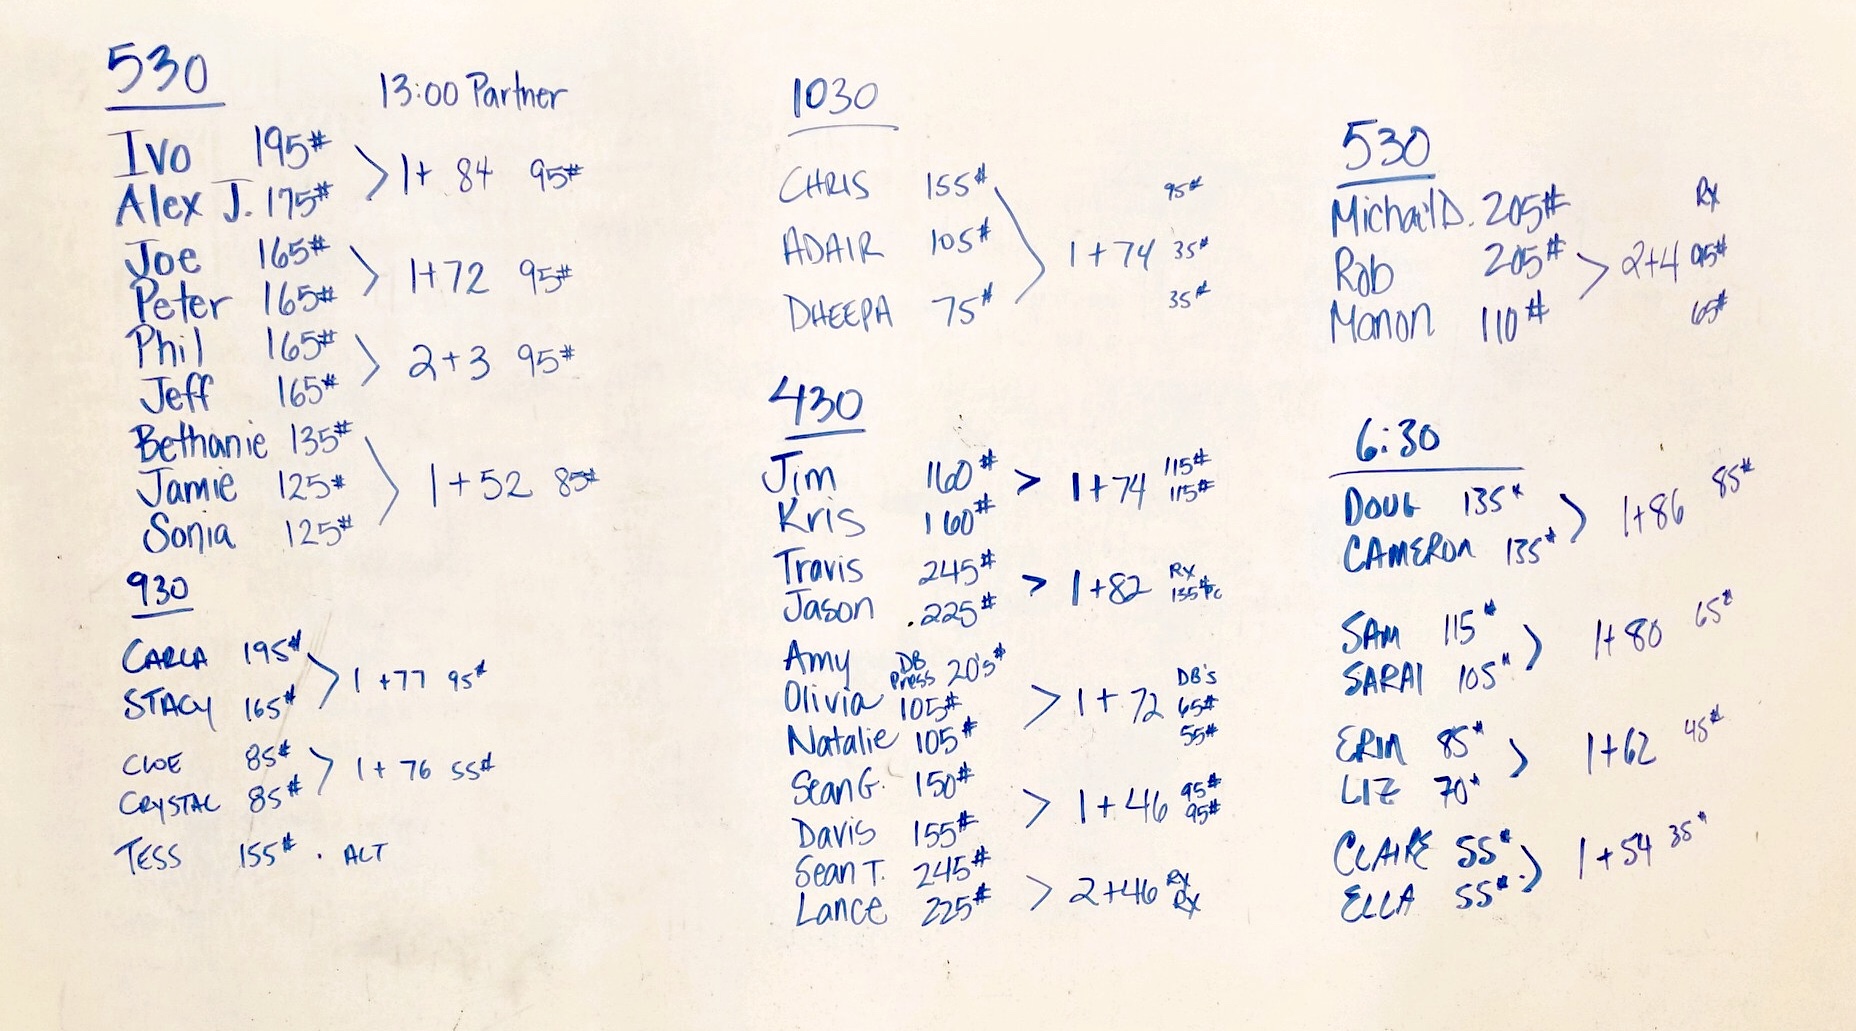 530
13:00 Partner
Ivo 195# > 1+ 84 95#
Alex J. 175#
Joe 165# > 1+72 95#
Peter 165#
Phil 165# > 2+3 95#
Jeff 165#
Bethanie 135#
Jamie 125# > 1+52 85#
Sonia 125#
930
CARLA 195# > 1+77 95#
STACY 165#
CLOE 85# > 1+ 76 55#
CRYSTAL 85#
TESS 155# . ALT
1030
CHRIS 155# 95#
ADAIR 105# > 1+74 35#
DHEEPA 75# 35#
430
Jim 160# > 1+74 115#
Kris 160# 115#
Travis 245# > 1+82 Rx
Jason .225# 135# PC
Amy DB Press 20's# DB's
Olivia 105# > 1+72 65#
Natalie 105# 55#
Sean G. 150# > 1+46 95#
Davis 155# 95#
Sean T. 245# > 2+46 Rx
Lance 225# Rx
530
Michail D. 205# Rx
Rob 205# > 2+4 95#
Manon 110# 65#
6:30
DOUG 135# > 1+86 85#
CAMERON 135#
SAM 115# > 1+80 65#
SARAI 105#
ERIN 85# > 1+62 45#
LIZ 70#
CLAIRE 55# > 1+54 35#
ELLA 55#